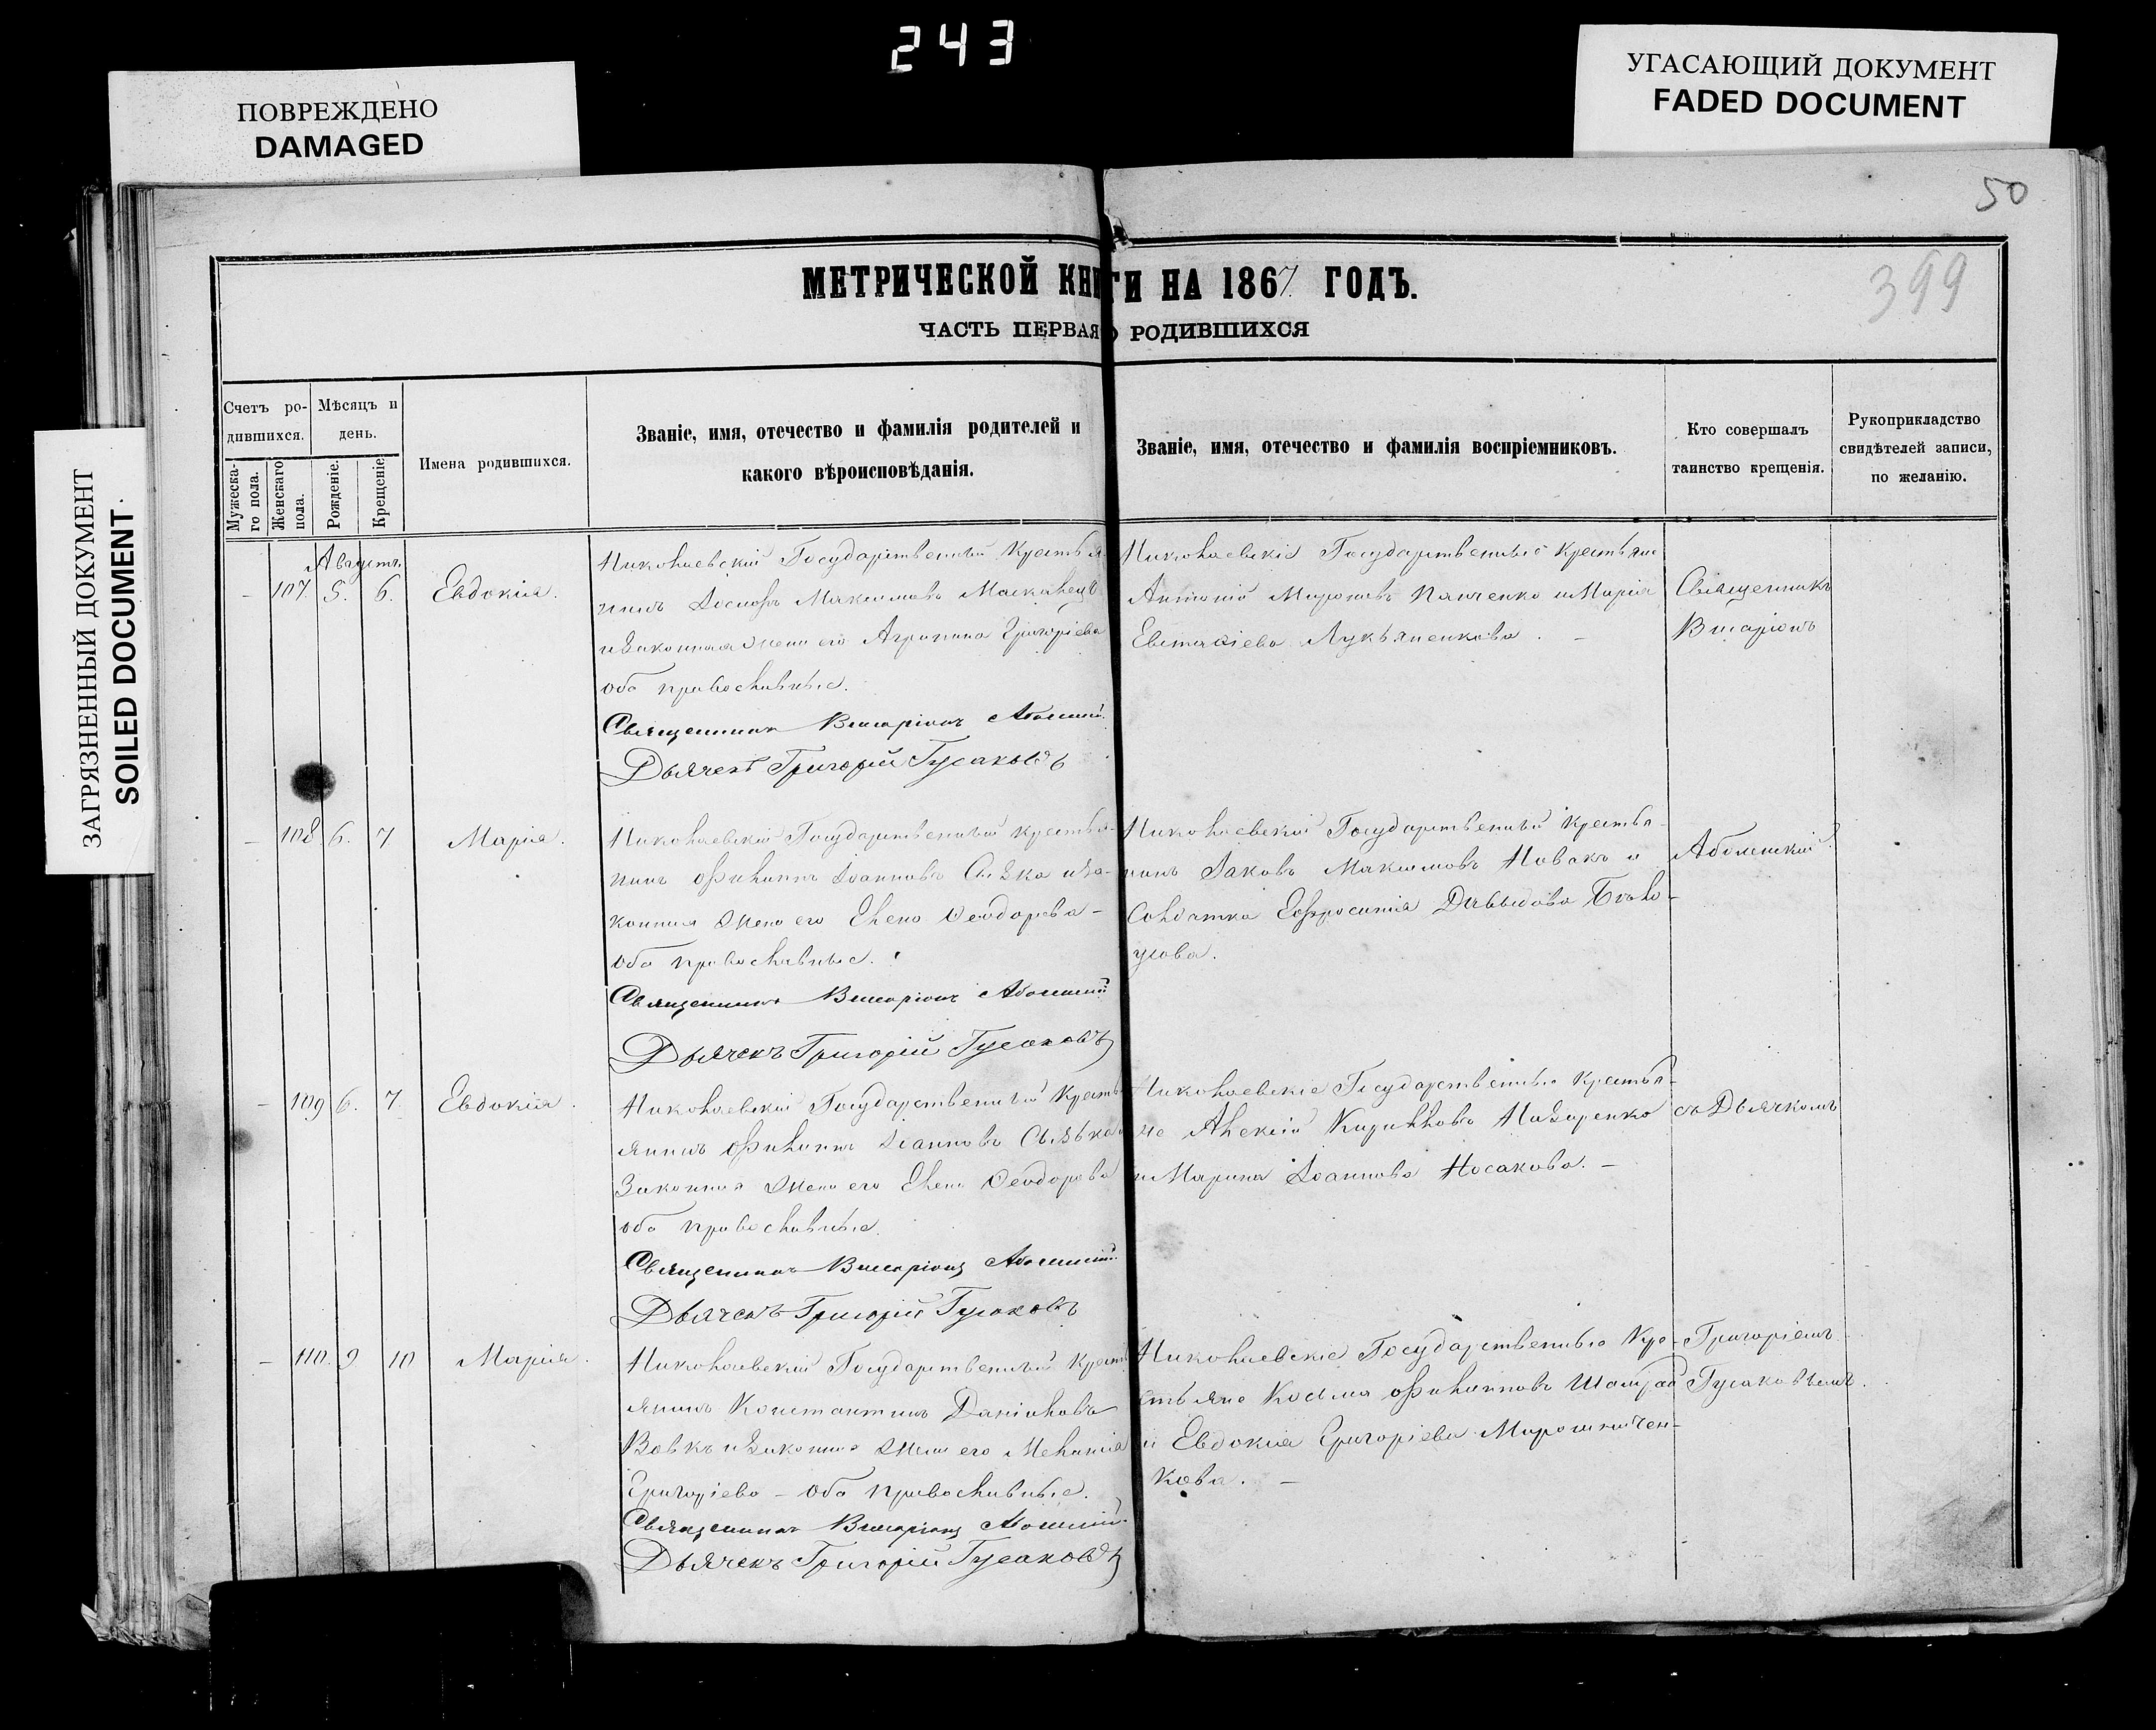 243
ПОВРЕЖДЕНО
DAMAGED
УГАСАЮЩИЙ ДОКУМЕНТ
FADED DOCUMENT
ЗАГРЯЗНЕННЫЙ ДОКУМЕНТ
SOILED DOCUMENT
50
399
МЕТРИЧЕСКОЙ КНИГИ НА 1867 ГОДЪ.
ЧАСТЬ ПЕРВАЯ О РОДИВШИХСЯ
Счетъ ро-
дившихся.
Мѣсяцъ и
день.
Мужеска-
го пола.
Женскаго
пола.
Рожденіе.
Крещеніе.
Имена родившихся.
Званіе, имя, отечество и фамилія родителей и
какого вѣроисповѣданія.
Званіе, имя, отечество и фамилія воспріемниковъ.
Кто совершалъ
таинство крещенія.
Рукоприкладство
свидѣтелей записи,
по желанію.
Августъ
- 107. 5. 6. Евдокія.
Николаевскій Государственный Кресть я
нинъ Максимовъ
и законная жена его Агрипина Григоріева
оба православные.
Священникъ Виссаріонъ
Дьячекъ Григорій Гусаковъ
Николаевскіе Государственные крестьяне
Антоній Мироновъ Панченко и Марія
Евстафіева Лукьяненкова. -
Священникъ
Висаріонъ
- 108 6. 7 Марія.
Николаевскій Государственный крестья-
нинъ Филиппъ Іоанновъ и за-
конная жена его Елена Ѳеодорова -
оба православные.
Священникъ Виссаріонъ
Дьячекъ Григорій Гусаковъ
Николаевскій Государственный крестья-
нинъ Іаковъ Максимовъ Новакъ и
Солдатка Евфросинія Давыдова
усова.
- 109 6. 7 Евдокія.
Николаевскій Государственный Кресть
янинъ Филиппъ Іоанновъ
Законная жена его Елена Ѳеодорова
оба православные.
Священникъ Виссаріонъ
Дьячекъ Григорій Гусаковъ
Николаевскіе Государственные Крестья-
не Алексій Кирилловъ Назаренко
и Марина Іоаннова Носакова. -
съ Дьячкомъ
- 110. 9 10 Марія.
Николаевскій Государственный Кресть
янинъ Константинъ Даніиловъ
Вовкъ и законная жена его Меланія
Григоріева - оба православные.
Священникъ Виссаріонъ
Дьячекъ Григорій Гусаковъ
Николаевскіе Государственные Кре-
стьяне Косьма Филипповъ
и Евдокія Григоріева Мирошничен-
кова. -
Григоріемъ
Гусаковымъ.